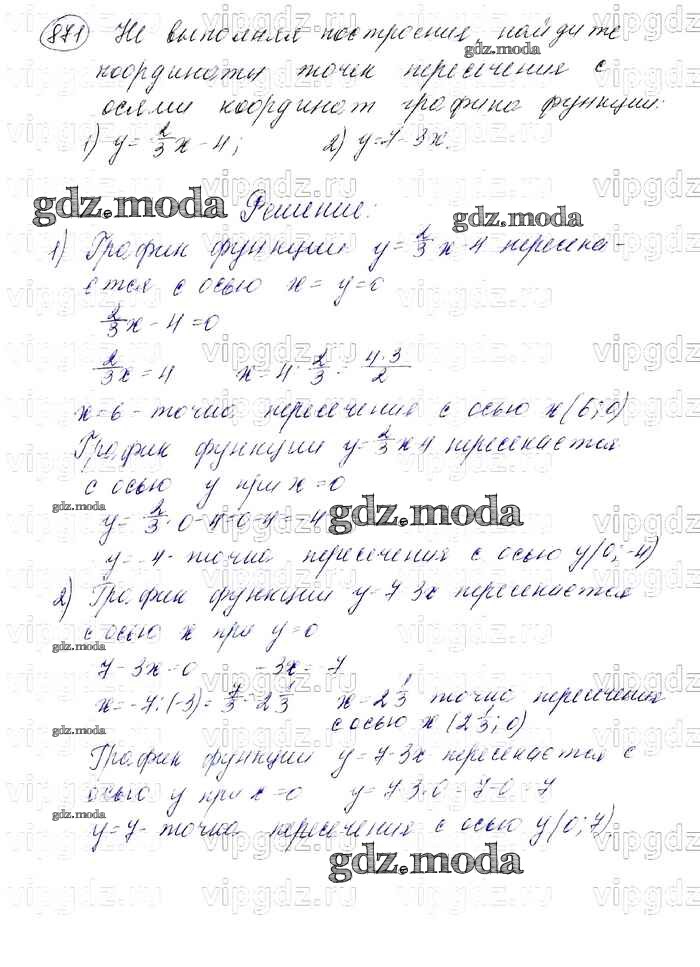 871 Не выполняя построения, найдите
координаты точек пересечения с
осями координат графика функции:
1) y = 2/3 x - 4; 2) y = 7 - 3x.
Решение:
1) График функции y = 2/3 x - 4 пересека-
ется с осью x = y = 0
2/3 x - 4 = 0
2/3 x = 4 x = 4 : 2/3 = 4·3/2
x = 6 - точка пересечения с осью x (6; 0)
График функции y = 2/3 x 4 пересекается
с осью y при x = 0
y = 2/3 · 0 - 4 = 0 - 4 = -4
y = -4 - точка пересечения с осью y (0; -4)
2) График функции y = 7 3x пересекается
с осью x при y = 0
7 - 3x = 0 -3x = -7
x = -7 : (-3) = 7/3 = 2 1/3 x = 2 1/3 точка пересечения
с осью x (2 1/3; 0)
График функции y = 7 - 3x пересекается с
осью y при x = 0 y = 7 - 3·0 = 7 - 0 = 7
y = 7 - точка пересечения с осью y (0; 7).
gdz.moda
vipgdz.ru